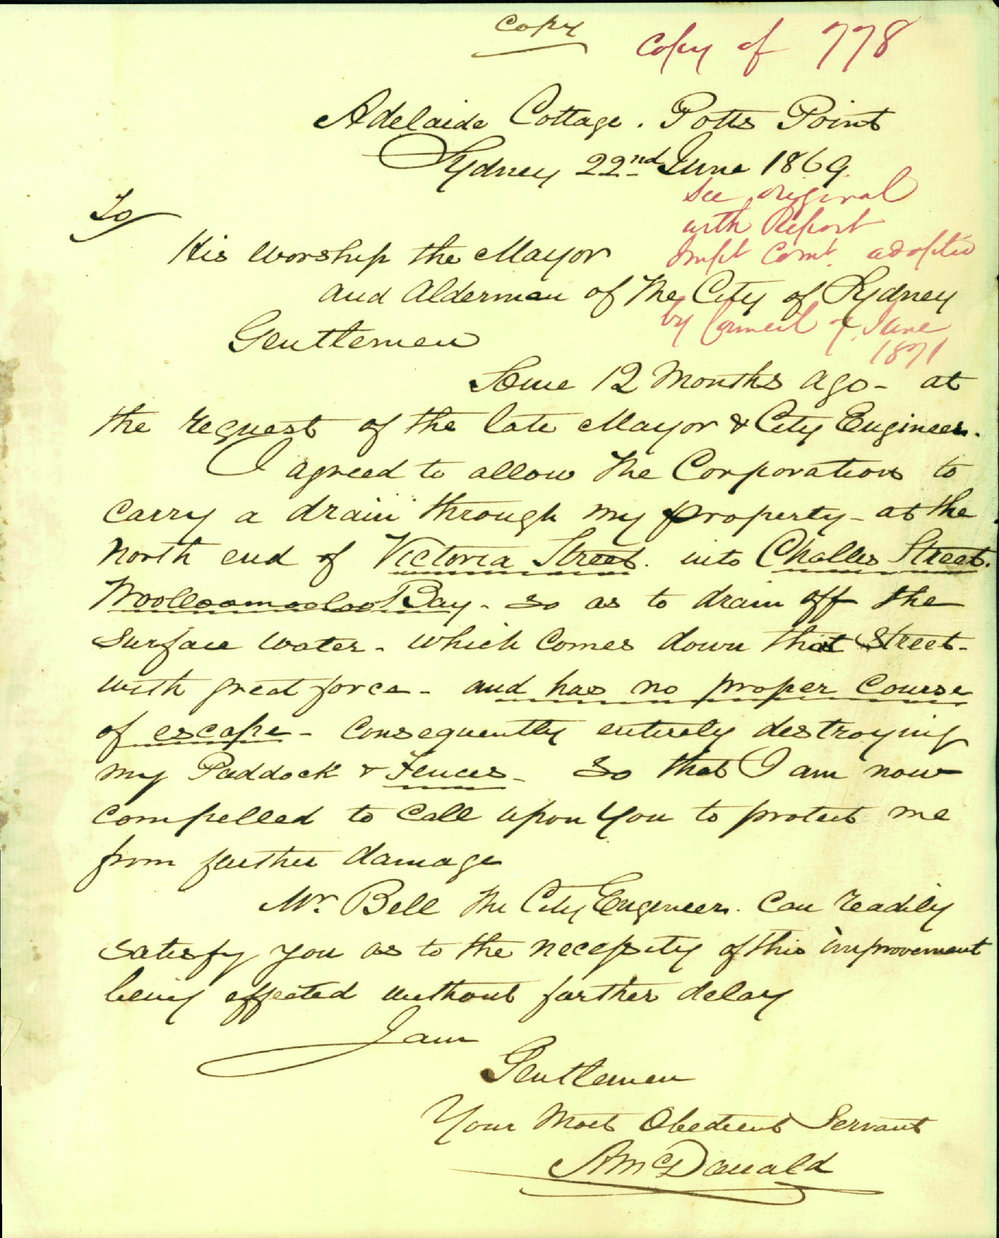 Copy
Copy of 778
Adelaide Cottage. Potts Point
Sydney 22nd June 1869.
See original
with Report
Impt Comt. adopted
by Council 7 June
1871
To
His Worship the Mayor
and Alderman of The City of Sydney
Gentlemen
Some 12 Months ago - at
the request of the late Mayor & City Engineer.
I agreed to allow The Corporation to
carry a drain through my property - at the
North end of Victoria Street. into Challis Street.
Woolloomooloo Bay - so as to drain off the
surface water - which comes down that Street -
with great force - and has no proper course
of escape - consequently entirely destroying
my Paddock & Fences - So that I am now
compelled to call upon You to protect me
from further damage
Mr. Bell The City Engineer. Can readily
satisfy you as to the necessity of this improvement
being effected without further delay
I am
Gentlemen
Your Most Obedient Servant
A McDonald